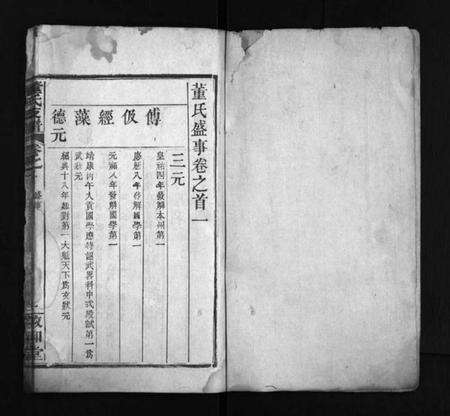 董氏盛事卷之首一
三元
傅 皇祐四年發解本州第一
伋 慶曆八年發解國學第一
經 元祐八年發解國學第一
藻 靖康丙午入貢國學應特詔武舉科中式殿試第一為武狀元
德元 紹興十八年廷對第一大魁天下為文狀元
董氏
卷之一
敦和堂